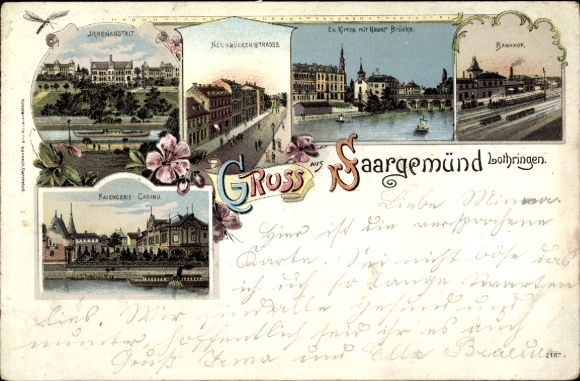 IRRENANSTALT
NEUBRÜCKENSTRASSE
Ev. Kirche mit Neuer Brücke.
BAHNHOF.
GRUSS AUS Saargemünd Lothringen.
FAIENCERIE-CASINO.
Liebe Minna.
Hier ist die versprochene
Karte. Sei nicht böse das
ich dich so lange warten
ließ. Wir sind alle gesund und
munter, hoffentlich seid ihr es auch
Gruß Irma und Ella Braun
2107.